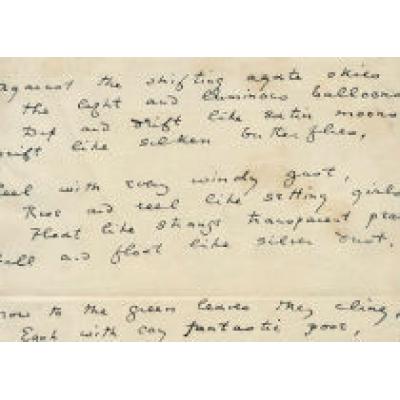 against the shifting agate skies
the light and luminous balloons
Dip and drift like satin moons
rift like silken butterflies,
eel with every windy gust,
Rise and reel like girls
Float like strange transparent pear
all and float like silver dust.
now to the green leaves they cling,
Each with coy fantastic pose,